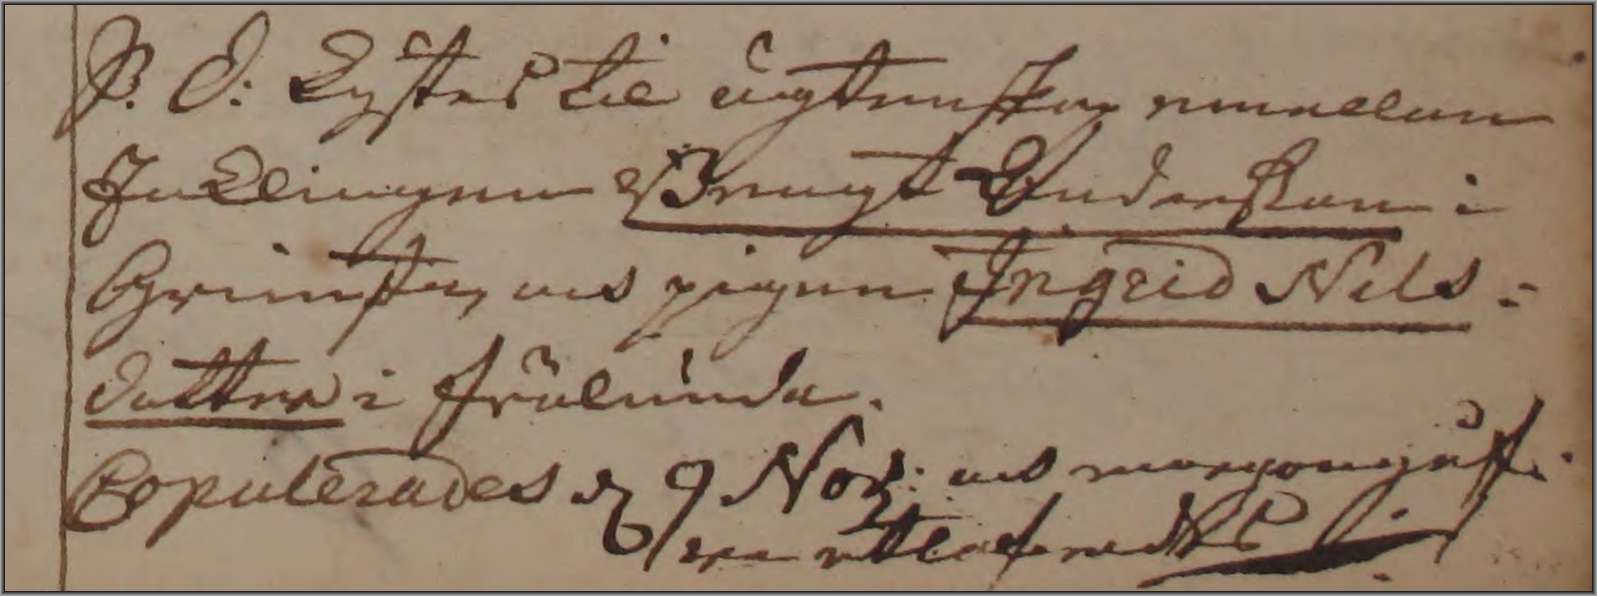 P. D: Lystes til ägtenskap emellan
Ynklingen Bengt Andersson i
Grimsta, och pigan Ingrid Nils-
dotter i Frölunda.
Copulerades d 9 Nov: och morgongåfv.
utlofvades